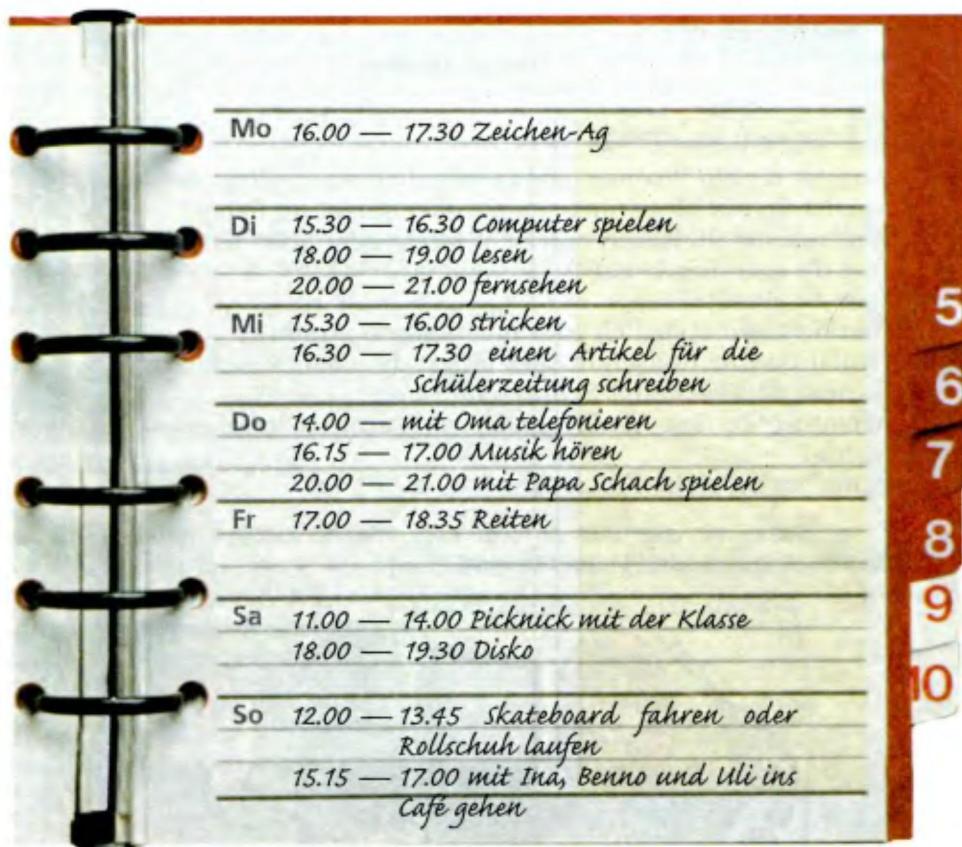 Mo 16.00 — 17.30 Zeichen-Ag
Di 15.30 — 16.30 Computer spielen
18.00 — 19.00 lesen
20.00 — 21.00 fernsehen
Mi 15.30 — 16.00 stricken
16.30 — 17.30 einen Artikel für die
Schülerzeitung schreiben
Do 14.00 — mit Oma telefonieren
16.15 — 17.00 Musik hören
20.00 — 21.00 mit Papa Schach spielen
Fr 17.00 — 18.35 Reiten
Sa 11.00 — 14.00 Picknick mit der Klasse
18.00 — 19.30 Disko
So 12.00 — 13.45 Skateboard fahren oder
Rollschuh laufen
15.15 — 17.00 mit Ina, Benno und Uli ins
Café gehen
5
6
7
8
9
10